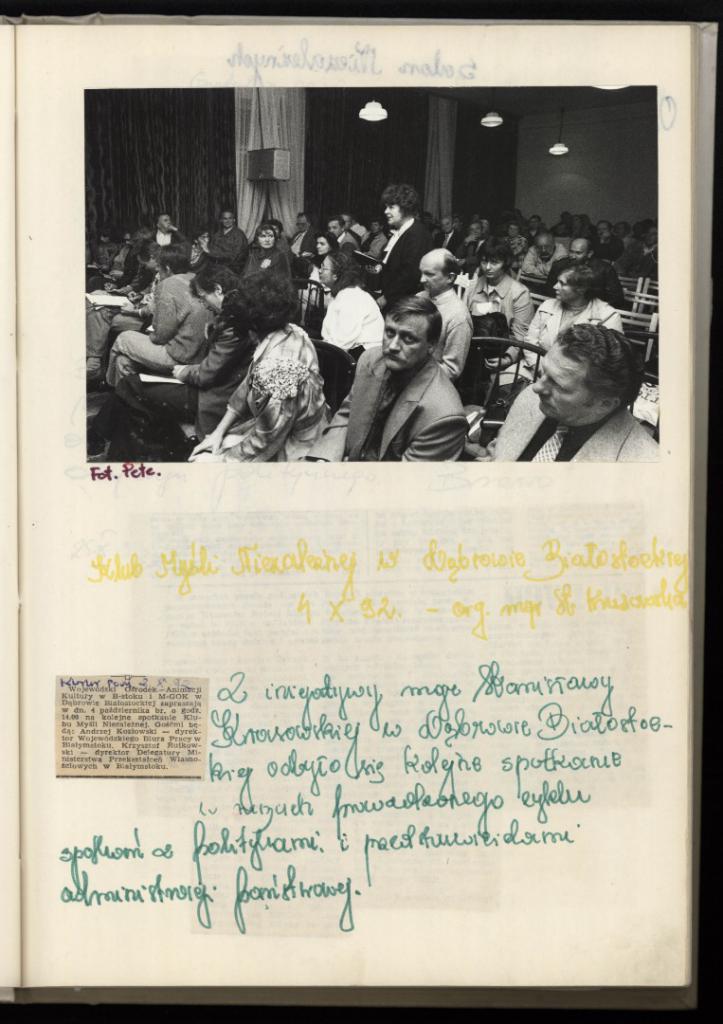 Fot. Pete.
Klub Myśli Niezależnej w Dąbrowie Białostockiej
4 X 92. - org. mgr St Krusowska
Kurier Pod. 2 X 92
Wojewódzki Ośrodek Animacji
Kultury w B-stoku i M-GOK w
Dąbrowie Białostockiej zapraszają
w dn. 4 października br. o godz.
14.00 na kolejne spotkanie Klu-
bu Myśli Niezależnej. Gośćmi bę-
dą: Andrzej Kozłowski — dyrek-
tor Wojewódzkiego Biura Pracy w
Białymstoku, Krzysztof Rutkow-
ski — dyrektor Delegatury Mi-
nisterstwa Przekształceń Własno-
ściowych w Białymstoku.
Z inicjatywy mgr Stanisławy
Krusowskiej w Dąbrowie Białostoc-
kiej odbyło się kolejne spotkanie
w ramach prowadzonego cyklu
spotkań z politykami i przedstawicielami
administracji państwowej.